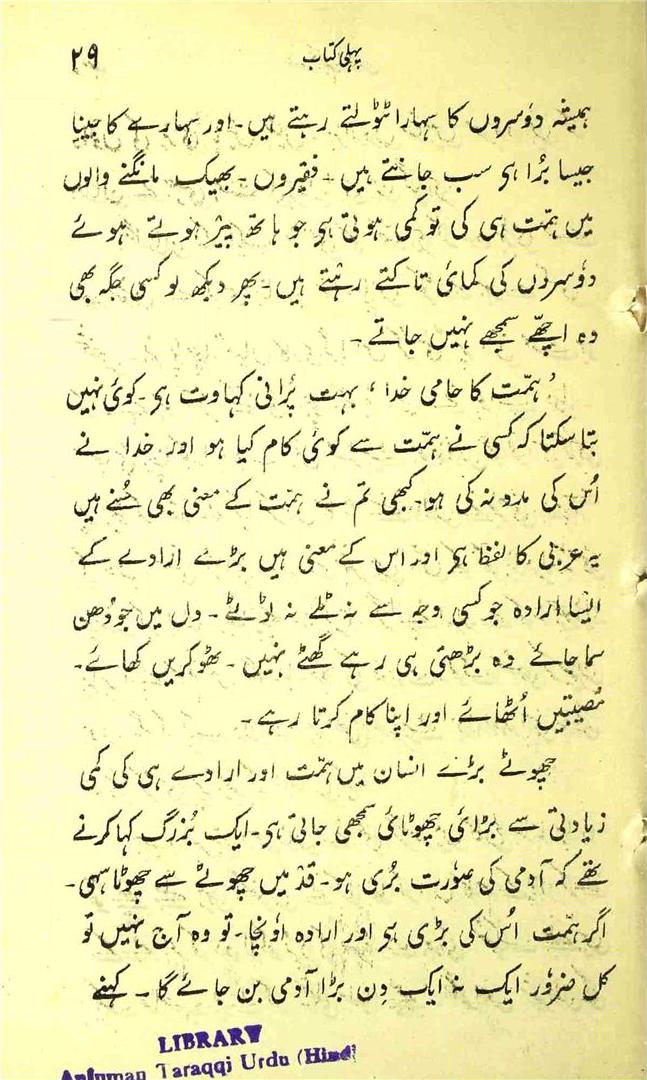 ۲۹ پہلی کتاب
ہمیشہ دوُسروں کا سہارا ٹٹولتے رہتے ہیں۔ اور سہارے کا جینا
جیسا بُرا ہی سب جانتے ہیں۔ فقیرون۔ بھیک مانگنے والوں
میں ہمّت ہی کی تو کمی ہوتی ہی جو ہاتھ پیَر ہوتے ہوئے
دوُسروں کی کمائی تاکتے رہتے ہیں۔ پھر دیکھ لو کسی جگہ بھی
وہ اچھّے سمجھے نہیں جاتے۔
’ہمّت کا حامی خدا‘ بہت پُرانی کہاوت ہی۔ کوئی نہیں
بتا سکتا کہ کسی نے ہمّت سے کوئی کام کیا ہو اور خدا نے
اُس کی مدد نہ کی ہو۔ کبھی تم نے ہمّت کے معنی بھی سُنے ہیں
یہ عربی کا لفظ ہی اور اس کے معنی ہیں بڑے ارادے کے
ایسا ارادہ جو کسی وجہ سے نہ ٹلے نہ ٹوٹے۔ دل میں جو دُھن
سما جائے وہ بڑھتی ہی رہے گھٹے نہیں۔ ٹھوکریں کھائے۔
مُصیبتیں اُٹھائے اور اپنا کام کرتا رہے۔
چھوٹے بڑے انسان میں ہمّت اور ارادے ہی کی کمی
زیادتی سے بڑائی چھوٹائی سمجھی جاتی ہی۔ ایک بُزرگ کہا کرنے
تھے کہ آدمی کی صوُرت بُری ہو۔ قد میں چھوٹے سے چھوٹا سہی۔
اگر ہمّت اُس کی بڑی ہی اور ارادہ اوُنچا۔ تو وہ آج نہیں تو
کل ضروُر ایک نہ ایک دِن بڑا آدمی بن جائے گا۔ کہنے
LIBRARY
Anjuman Taraqqi Urdu (Hind)